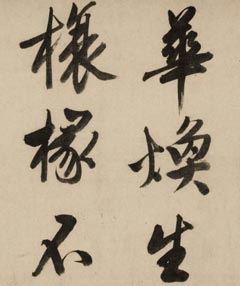 華煥生
榱椽不